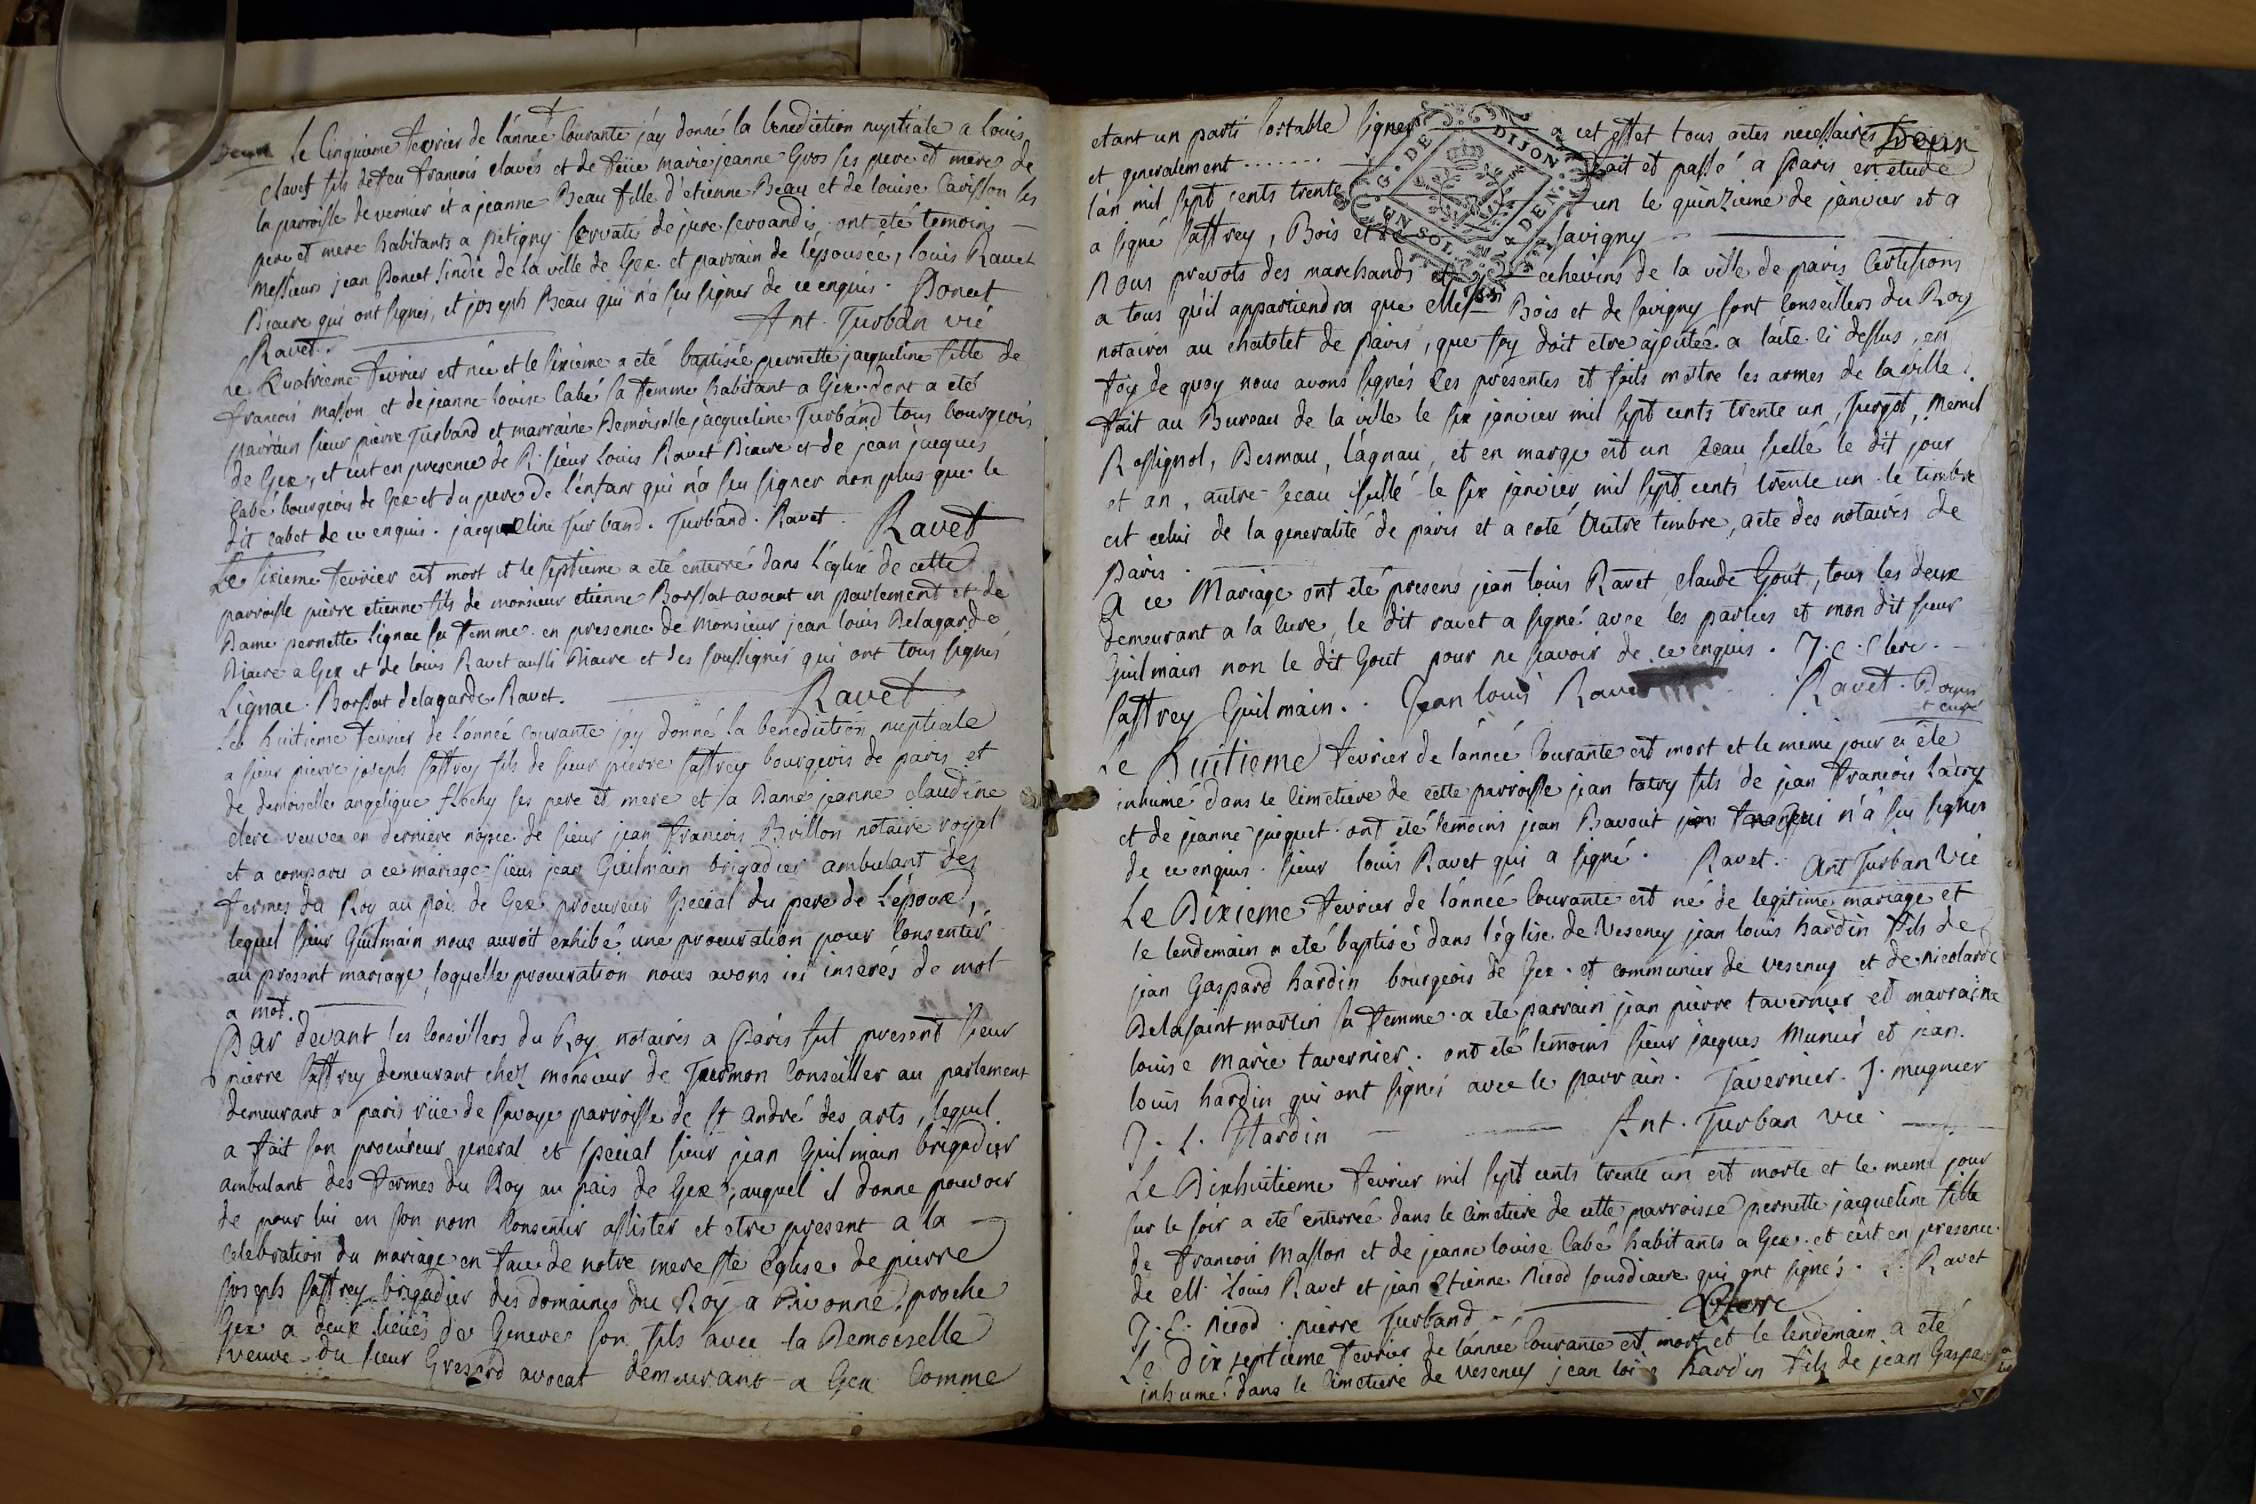 Le Cinquieme fevrier de l'année Courante j'ay donné la benediction nuptiale a louis
clavet fils de feu francois clavet et de feüe marie jeanne Gros ses pere et mere de
la parroisse de vernier et a jeanne Beau fille d'etienne Beau et de louise Cavisson ses
pere et mere habitants a pitigny. servatis de jure servandis, ont eté temoins
messieurs jean Poncet sindic de la ville de Gex et parrain de l'epousée, louis Ravet
Diacre qui ont signés, et joseph Beau qui n'a seu signer de ce enquis. Poncet
Ravet. Ant. Turban vic
Le Quatrieme fevrier est née et le sixieme a eté baptisée pernette jacqueline fille de
francois masson et de jeanne louise Cabé sa femme habitant a Gex. dont a eté
parrain sieur pierre Turband et marraine Demoiselle jacqueline Turband tous bourgeois
de Gex, et c'est en presence de R. sieur Louis Ravet Diacre et de jean jacques
Cabé bourgeois de Gex et du pere de l'enfant qui n'a seu signer non plus que le
dit cabet de ce enquis. jacqueline Turband. Turband. Ravet. Ravet
Le sixieme fevrier est mort et le septieme a eté enterré dans l'église de cette
parroisse pierre etienne fils de monsieur etienne Borssat avocat en parlement et de
Dame pernette Lignac sa femme en presence de monsieur jean louis Delagarde
Diacre a Gex et de louis Ravet aussi Diacre et des soussignés qui ont tous signés
Lignac. Borssat delagarde Ravet. Ravet
Le huitieme fevrier de l'année courante j'ay donné la benediction nuptiale
a sieur pierre joseph saffrey fils de sieur pierre saffrey bourgeois de paris et
de demoiselle angelique flochy ses pere et mere et a Dame jeanne claudine
clerc veuve en derniere nopce de sieur jean francois Brillon notaire royal
et a comparu a ce mariage sieur jean Guilmain brigadier ambulant des
fermes du Roy au païs de Gex procureur special du pere de l'époux,
lequel sieur Guilmain nous auroit exhibé une procuration pour Consentir
au present mariage, laquelle procuration nous avons ici inserés de mot
a mot.
Par devant les Conseillers du Roy notaires a Paris fut present sieur
pierre saffrey demeurant chez monsieur de Conseiller au parlement
demeurant a paris rüe de savoye parroisse de st andré des arts, lequel
a fait son procureur general et special sieur jean Guilmain brigadier
ambulant des fermes du Roy au païs de Gex, auquel il donne pouvoir
de pour lui en son nom Consentir assister et etre present a la
celebration du mariage en face de notre mere ste eglise de pierre
joseph saffrey brigadier des domaines du Roy a Divonne proche
Gex a deux lieües de Geneve son fils avec la Demoiselle
veuve du sieur avocat demeurant a Gex Comme
etant un parti sortable signer a cet effet tous actes necessaires
et generalement ....... fait et passé a paris en etude
l'an mil sept cents trente un le quinzieme de janvier et a
a signé saffrey, Bois et de savigny
G. DE DIJON UN SOL 4 DEN.
Nous prevots des marchands et echevins de la ville de paris Certifions
a tous qu'il appartiendra que Mess Bois et de savigny sont Conseillers du Roy
notaires au chatelet de paris, que foy doit etre ajoutée a l'acte ci dessus, en
foy de quoy nous avons signés Ces présentes et faits mettre les armes de la ville.
fait au Bureau de la ville le six janvier mil sept cents trente un, Turgot,
Rossignol, Besmau, lagnau, et en marge est un zeau scellé le dit jour
et an, autre zeau scellé le six janvier mil sept cents trente un. le timbre
est celui de la generalité de paris et a coté autre timbre, acte des notaires de
Paris.
A ce Mariage ont eté presens jean louis Ravet, claude Gout, tous les deux
demeurant a la Cure, le dit ravet a signé avec les parties et mon dit sieur
Guilmain non le dit Gout pour ne scavoir de ce enquis. J. C. Clerc.
saffrey Guilmain. Jean louis Ravet Ravet. Doyen
et curé
Le Huitieme fevrier de l'année Courante est mort et le meme jour a eté
inhumé dans le Cimetiere de cette parroisse jean fils de jean francois
et de jeanne jacquet. ont eté temoins jean Bavout qui n'a seu signer
de ce enquis. sieur louis Ravet qui a signé. Ravet. Ant Turban Vic
Le Dixieme fevrier de l'année Courante est né de legitime mariage et
le lendemain a eté baptisé dans l'église de Veseney jean louis hardin fils de
jean Gaspard hardin bourgeois de Gex. et communier de veseney et de nicolarde
Delasaint martin sa femme. a eté parrain jean pierre tavernier et marraine
louise marie tavernier. ont eté temoins sieur jacques Munier et jean
louis hardin qui ont signés avec le parrain. Tavernier. J. mugnier
J. L. Hardin Ant. Turban vic
Le Dixhuitieme fevrier mil sept cents trente un est morte et le meme jour
sur le soir a eté enterrée dans le Cimetiere de cette parroisse pernette jacqueline fille
de francois Masson et de jeanne louise Cabé habitants a Gex. et c'est en presence
de Louis Ravet et jean etienne Nicod sousdiacre qui ont signés. L. Ravet
Nicod. pierre Turband
Le Dixseptieme fevrier de l'année Courante est mort et le lendemain a eté
inhumé dans le Cimetiere de veseney jean hardin fils de jean Gaspard